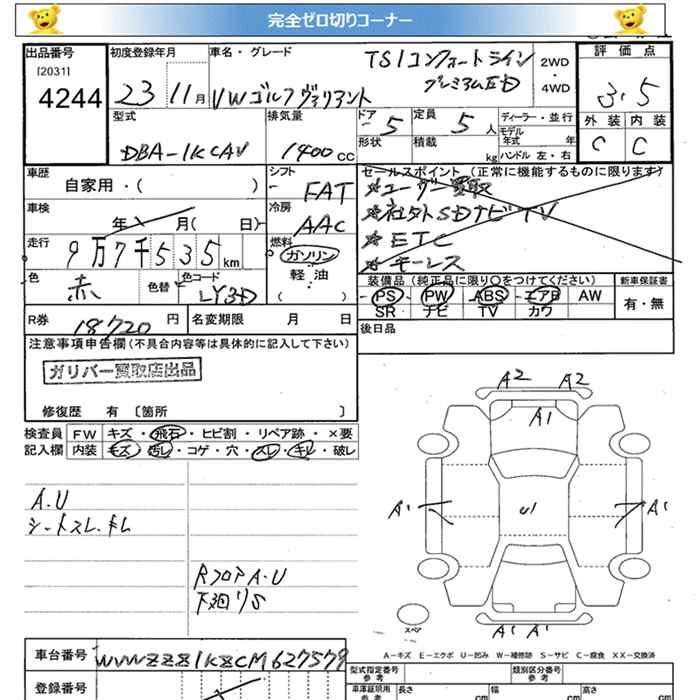 完全ゼロ切りコーナー
出品番号 初度登録年月 車名・グレード TSIコンフォートライン 評価点
[2031] プレミアムEd 2WD・4WD
4244 23 11月 VWゴルフヴァリアント 3.5
型式 排気量 ドア 定員 ディーラー・並行 外装 内装
DBA-1KCAV 1400cc 5 5人 モデル年式 年 C C
形状 積載 kg ハンドル 左・右
車歴 シフト セールスポイント(正常に機能するものに限ります)
自家用・( ) FAT ☆ユーザー買取
車検 冷房 ☆社外SDナビTV
年 月( 日) AAC ☆ETC
走行 燃料 ☆キーレス
9万7千535km ガソリン
色 色替 色コード 軽・油 装備品(純正品に限り○をつけてください) 新車保証書
赤 LY3D ( ) PS PW ABS エアB AW 有・無
SR ナビ TV カワ
R券 18720円 名変期限 月 日 後日品
注意事項申告欄(不具合内容等は具体的に記入して下さい)
ガリバー買取店出品
修復歴 有 〔箇所 〕
検査員 FW キズ・飛石・ヒビ割・リペア跡・×要
記入欄 内装 モズ・汚レ・コゲ・穴・スレ・キレ・破レ
A2 A2
A1
A.U
シートスレ.キレ
A1 U1 A1
RフロアA.U
下廻りS
スペア
A1 A1
A-キズ E-エクボ U-凹み W-補修跡 S-サビ C-腐食 XX-交換済
車台番号 WVWZZZ1KZCM627579
登録番号
型式指定番号 参考 類別区分番号 参考
車庫証明用 参考 長さ cm 幅 cm 高さ cm